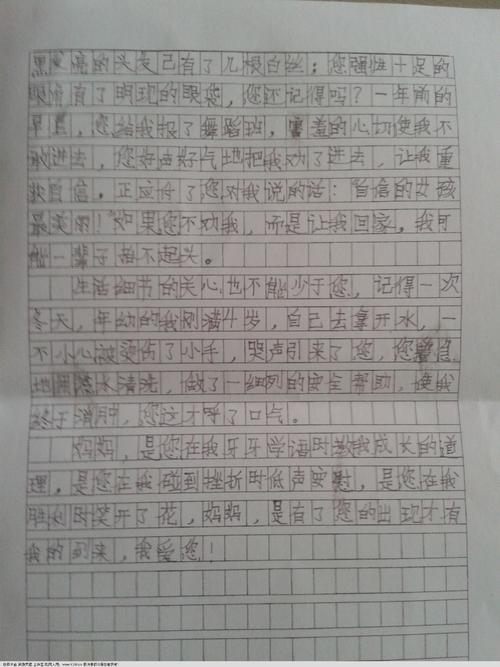 黑亮的头发已有了几根白丝；您强悍十足的
眼俯有了明现的眼袋，您还记得吗？一年前的
早晨，您给我报了舞蹈班，害羞的心切使我不
敢进去，您好声好气地把我劝了进去，让我重
获自信。正应付了您对我说的话："自信的女孩
最美丽！"如果您不劝我，而是让我回家，我可
能一辈子抬不起头。
生活细节的关心也不能少于您，记得一次
冬天，年幼的我刚满4岁，自己去拿开水，一
不小心被烫伤了小手，哭声引来了您，您急
地用水清洗，做了一细列的安全帮助，使我
终于消肿，您这才呼了口气。
妈妈，是您在我牙牙学语时教我成长的道
理，是您在我碰到挫折时低声安慰，是您在我
胜利时笑开了花，妈妈，是有了您的出现才有
我的到来，我爱您！